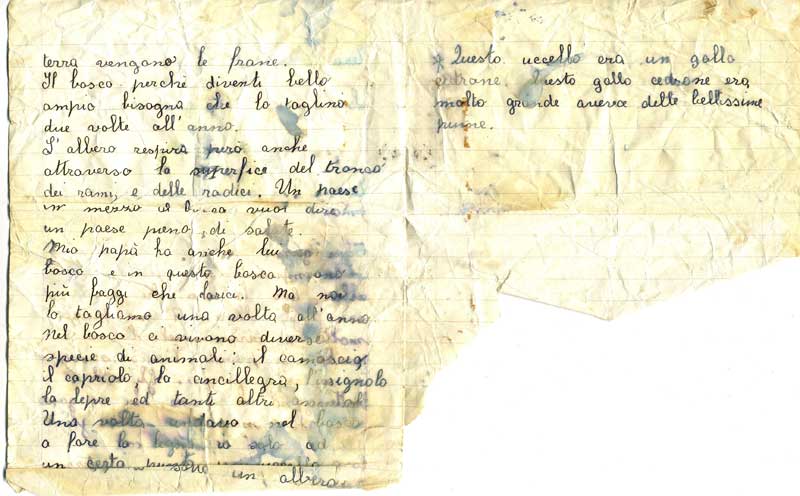 terra vengano le frane.
Il bosco perché diventi bello
ampio bisogna che lo taglino
due volte all'anno.
L'albero respira però anche
attraverso la superfice del tronco
dei rami, e delle radici. Un paese
in mezzo al bosco vuol dire
un paese pieno di salute.
Mio papà ha anche lui
bosco e in questo bosco
più faggi che larici. Ma noi
lo tagliamo una volta all'anno.
Nel bosco ci vivono diverse
specie di animali: il camoscio,
il capriolo, la cincillegra, l'usignolo
la lepre ed tanti altri animali.
Una volta andavo nel bosco
a fare la legna
un certo punto
un albero
* Questo uccello era un gallo
cedrone. Questo gallo cedrone era
molto grande aveva delle bellissime
piume.